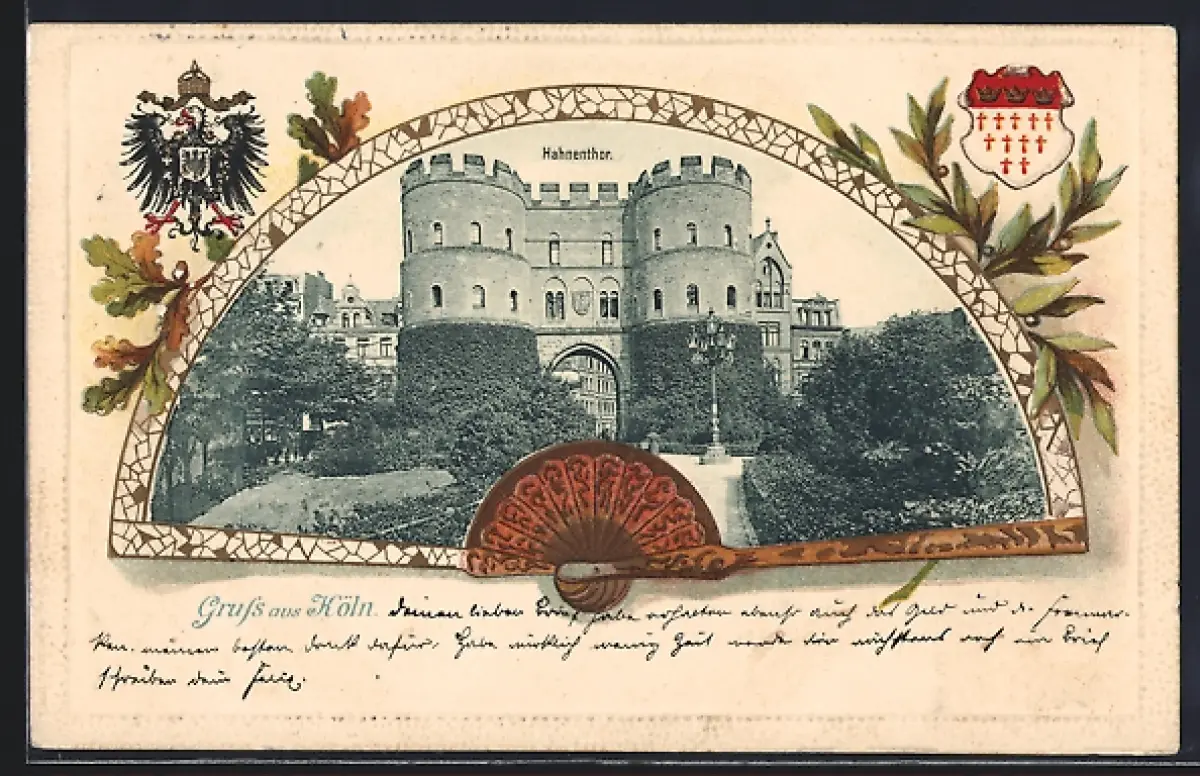 Hahnenthor.
Gruſs aus Köln. Deinen lieben Brief habe erhalten ebenso auch das Geld und d. Freimar-
ken. meinen besten Dank dafür. Habe wirklich wenig Zeit werde dir nächstens noch ein Brief
schreiben dein Felix.